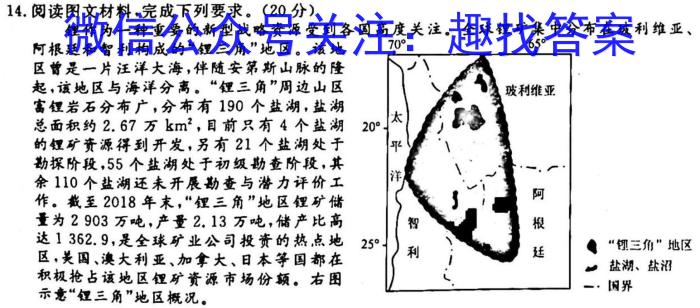 14.阅读图文材料,完成下列要求。(20分)
微信公众号关注：趣找答案
锂作为一种重要的新型战略资源受到各国高度关注。全球锂矿集中分布在玻利维亚、
阿根廷和智利构成的“锂三角”地区。该地
区曾是一片汪洋大海,伴随安第斯山脉的隆
起,该地区与海洋分离。“锂三角”周边山区
富锂岩石分布广,分布有190个盐湖,盐湖
总面积约2.67万km²,目前只有4个盐湖
的锂矿资源得到开发,另有21个盐湖处于
勘探阶段,55个盐湖处于初级勘查阶段,其
余110个盐湖还未开展勘查与潜力评价工
作。截至2018年末,“锂三角”地区锂矿储
量为2903万吨,产量2.13万吨,储产比高
达1362.9,是全球矿业公司投资的热点地
区,美国、澳大利亚、加拿大、日本等国都在
积极抢占该地区锂矿资源市场份额。右图
示意“锂三角”地区概况。
70°
65°
玻利维亚
20°
太平洋
阿根廷
智利
25°
“锂三角”地区
盐湖、盐沼
国界